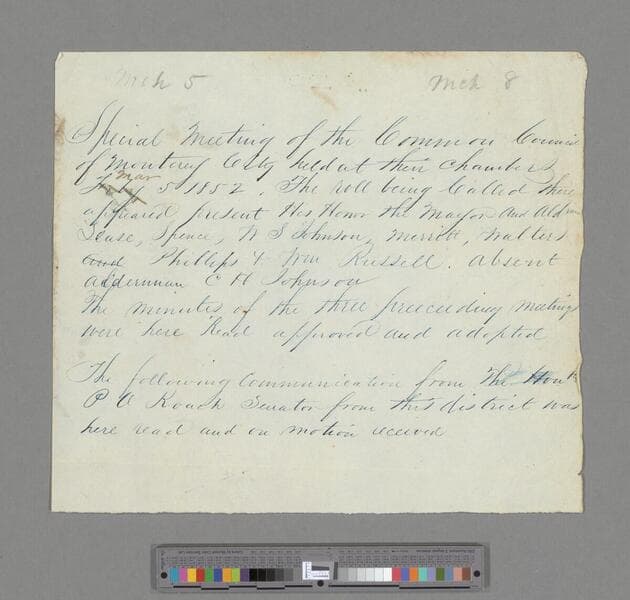 Mch 5 Mch 8
Special Meeting of the Common Council
of Monterey City held at their Chambers
Mar
Feby 5 1852. The roll being Called there
appeared present His Honor the Mayor and Aldrmn
Dease, Spence, W S Johnson, Merritt, Walters
and Phillips & Wm Russell. absent
alderman C H Johnson
The minutes of the three preeceeding meetings
were here Read approved and adopted
The following Communication from The Honb
P A Roach Senator from this district was
here read and on motion receved